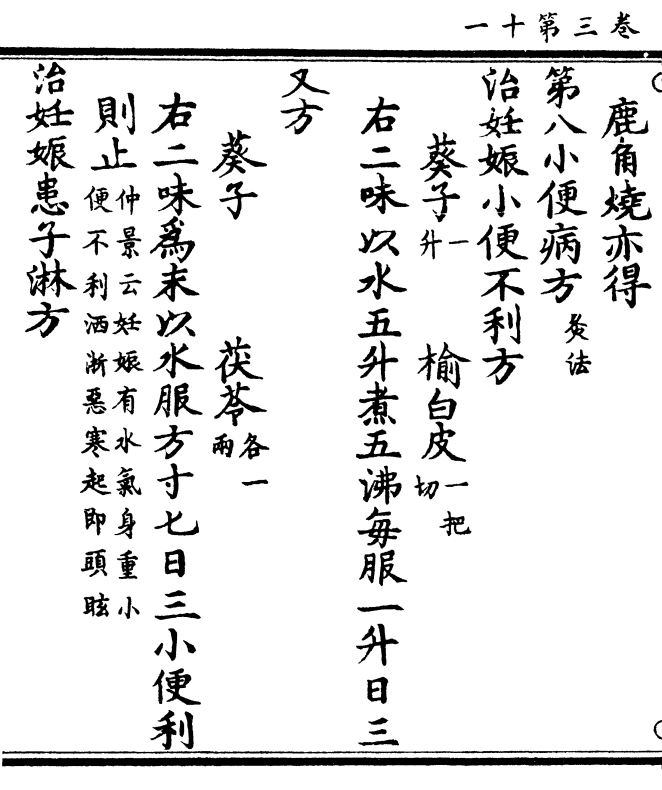 卷三第十一
鹿角燒亦得
第八小便病方 灸法
治妊娠小便不利方
葵子一升 榆白皮一把切
右二味以水五升煮五沸每服一升日三
又方
葵子 茯苓各一兩
右二味爲末以水服方寸七日三小便利
則止 仲景云妊娠有水氣身重小便不利洒淅惡寒起即頭眩
治妊娠患子淋方